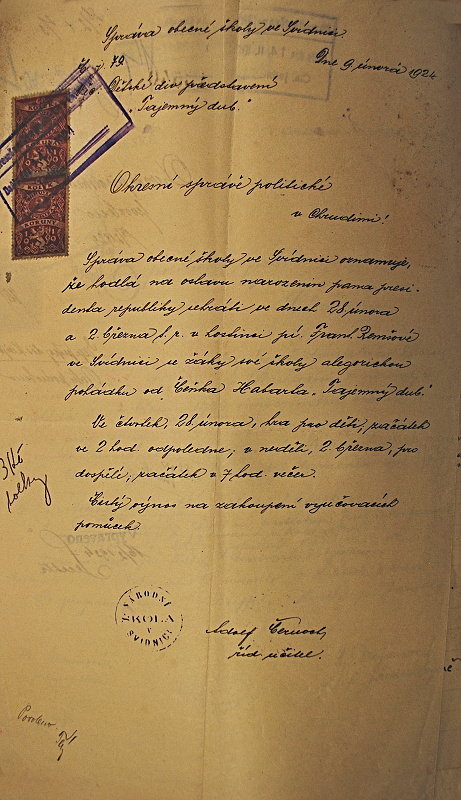 Správa obecné školy ve Svídnici
Dne 9. února 1924
Č. j. 79
Dětské div. představení
"Tajemný dub."
Okresní správě politické
v Chrudimi!
Správa obecné školy ve Svídnici oznamuje,
že hodlá na oslavu narozenin pana presi-
denta republiky sehráti ve dnech 28. února
a 2. března t. r. v hostinci pí. Frant.
ve Svídnici se žáky své školy alegorickou
pohádku od Čeňka Habarta "Tajemný dub."
Ve čtvrtek, 28. února, hra pro děti, začátek
ve 2 hod. odpoledne; v neděli, 2. března, pro
dospělé, začátek v 7 hod. večer.
Čistý výnos na zakoupení vyučovacích
pomůcek.
kolky
NÁRODNÍ
ŠKOLA
V
SVÍDNICI
Adolf Černoch
říd. učitel.